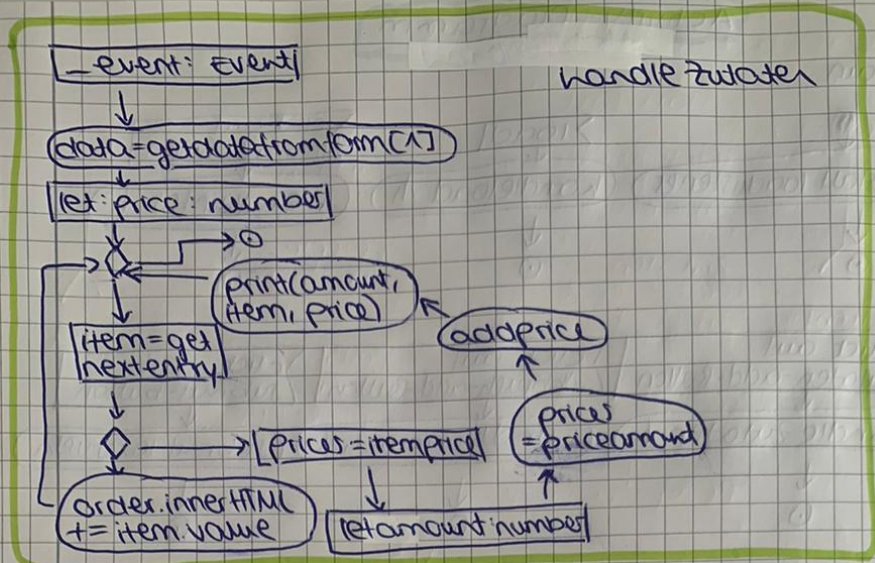 _event: Event
handle Zutaten
data=getdatafromform[1]
let:price:number
print(amount,
item, price)
addprice
item=get
nextentry
prices
=priceamount
prices=itemprice
order.innerHTML
+=item.value
letamount:number